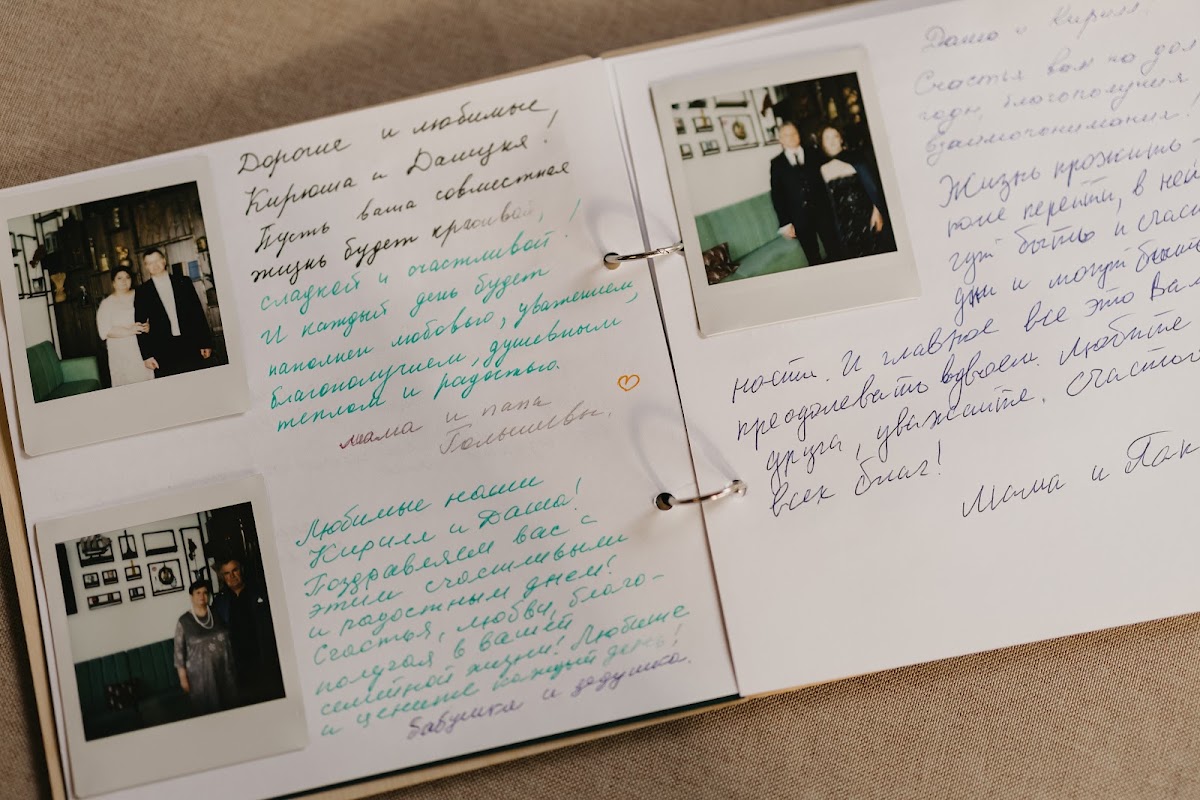 Дорогие и любимые,
Кирюша и Дашуня!
Пусть ваша совместная
жизнь будет красивой,
сладкой и счастливой!
И каждый день будет
наполнен любовью, уважением,
благополучием, душевным
теплом и радостью.
мама и папа
Любимые наши
Кирилл и Даша!
Поздравляем вас с
этим счастливыми
и радостным днем!
Счастья, любви, благо-
получая в вашей
семейной жизни! Любите
и цените каждый день!
бабушка и дедушка.
Даша и Кирилл!
Счастья вам на дол
годы, благополучия
взаимопонимания!
Жизнь прожить -
поле перейти, в ней
гут быть и счас
дни и могут быть
ности. И главное все это Вам
преодолевать вдвоем. Любите
друга, уважайте. Счастья
всех благ!
Мама и Пап